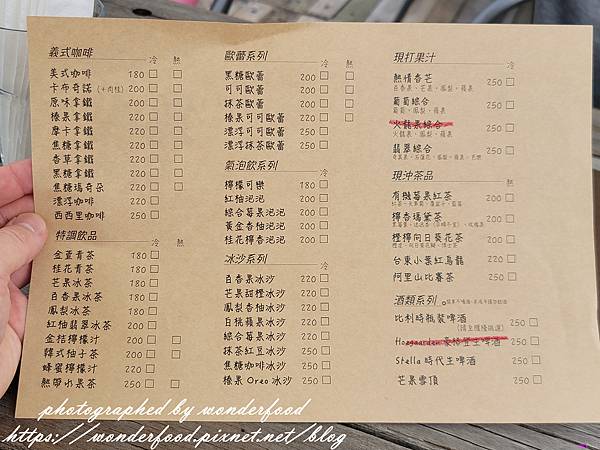 義式咖啡 冷 熱
美式咖啡 180 □ □
卡布奇諾 (+肉桂) 200 □ □
原味拿鐵 200 □ □
榛果拿鐵 200 □ □
摩卡拿鐵 200 □ □
焦糖拿鐵 200 □ □
香草拿鐵 200 □ □
黑糖拿鐵 200 □ □
焦糖瑪奇朵 220 □ □
漂浮咖啡 220 □
西西里咖啡 250 □
特調飲品 冷 熱
金萱青茶 180 □
桂花青茶 180 □
芒果冰茶 180 □
百香果冰茶 180 □
鳳梨冰茶 180 □
紅柚翡翠冰茶 200 □
金桔檸檬汁 200 □ □
韓式柚子茶 200 □ □
蜂蜜檸檬汁 220 □ □
熱帶水果茶 250 □ □
歐蕾系列 冷 熱
黑糖歐蕾 200 □ □
可可歐蕾 200 □ □
抹茶歐蕾 200 □ □
榛果可可歐蕾 220 □ □
漂浮可可歐蕾 250 □
漂浮抹茶歐蕾 250 □
氣泡飲系列 冷
檸檬可樂 180 □
紅柚泡泡 200 □
綜合莓果泡泡 200 □
黃金香柚泡泡 200 □
桂花檸香泡泡 200 □
冰沙系列 冷
百香果冰沙 220 □
芒果甜橙冰沙 220 □
鳳梨香柚冰沙 220 □
白桃蘋果冰沙 220 □
綜合莓果冰沙 220 □
抹茶紅豆冰沙 250 □
焦糖咖啡冰沙 250 □
榛果Oreo冰沙 250 □
現打果汁
熱情香芒 250 □
百香果、芒果、鳳梨、蘋果
葡萄綜合 250 □
葡萄、鳳梨、蘋果
火龍果綜合 250 □
火龍果、鳳梨、蘋果
翡翠綜合 250 □
現沖茶品
有機莓果紅茶 250 □
檸香瑪黛茶 250 □
橙檸向日葵花茶 250 □
台東小葉紅烏龍 220 □
阿里山比賽茶 250 □
酒類系列
比利時瓶裝啤酒 250 □
Hoegaarden 豪格登生啤酒 250 □
Stella 時代生啤酒 250 □
芒果雪頂 250 □
photographed by wonderfood
https://wonderfood.pixnet.net/blog